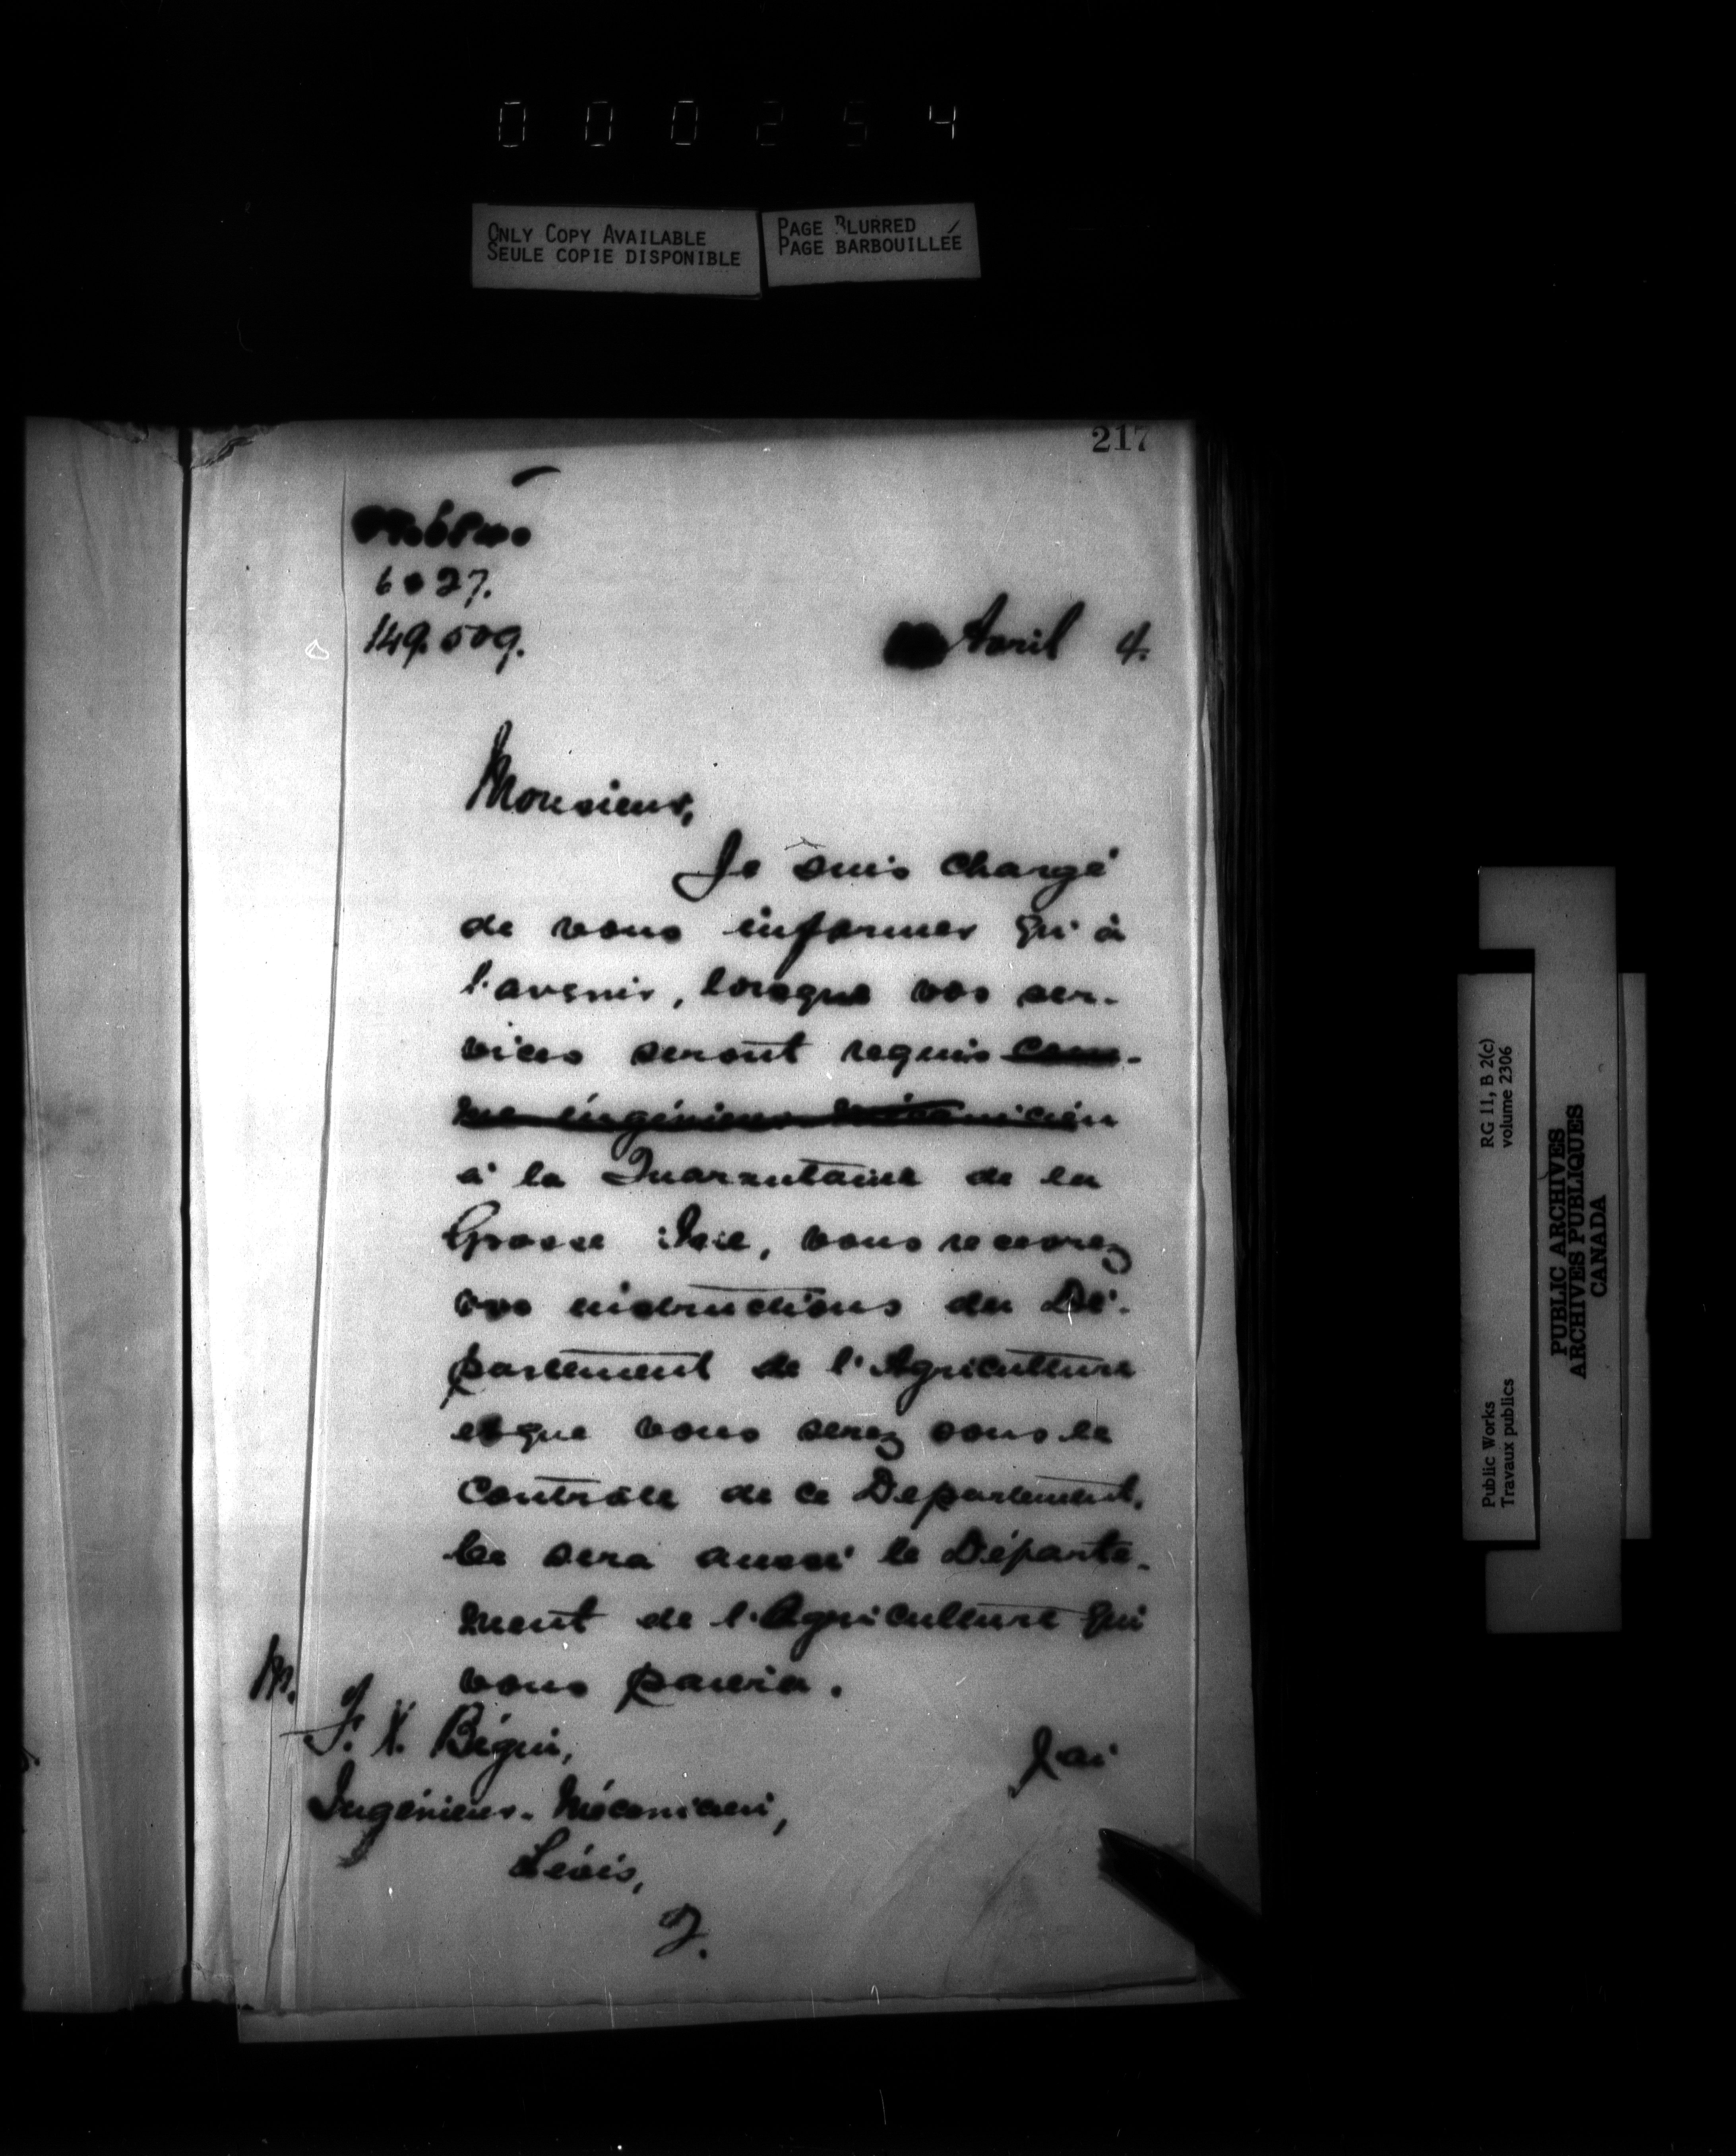 000254
ONLY COPY AVAILABLE
SEULE COPIE DISPONIBLE
PAGE BLURRED
PAGE BARBOUILLÉE
217
6027.
149.509.
Avril 4.
Monsieur,
Je suis chargé
de vous informer qu'à
l'avenir, lorsque vos ser-
vices seront requis com-
me ingénieur mécanicien
à la Quarantaine de la
Grosse Isle, vous recevrez
vos instructions du Dé-
partement de l'Agriculture
et que vous serez sous le
contrôle de ce Département.
Ce sera aussi le Départe-
ment de l'Agriculture qui
vous paiera.
J'ai
M.
F. X. Bégin,
Ingénieur-Mécanicien,
Lévis,
Q.
RG 11, B 2(c)
volume 2306
Public Works
Travaux publics
PUBLIC ARCHIVES
ARCHIVES PUBLIQUES
CANADA